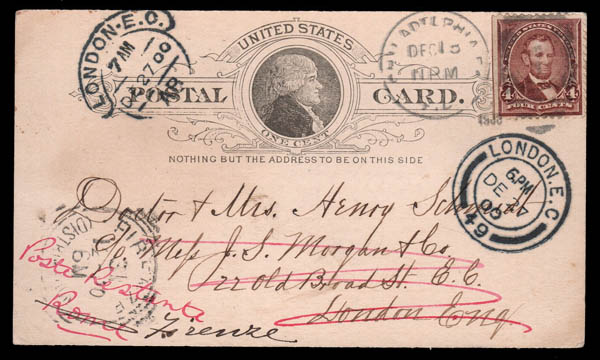 UNITED STATES
POSTAL CARD.
ONE CENT
NOTHING BUT THE ADDRESS TO BE ON THIS SIDE
LONDON·E.C.
7 AM
DE 27 00
AR
PHILADELPHIA
DEC
PM
4 4
FOUR CENTS
LONDON·E.C
6 PM
DE 27
00
49
Doctor & Mrs. Henry Schmidt
c/o Messrs J. S. Morgan & Co.
22 Old Broad St. E. C.
London Eng
Poste Restante
Rome
Firenze
FIRENZE